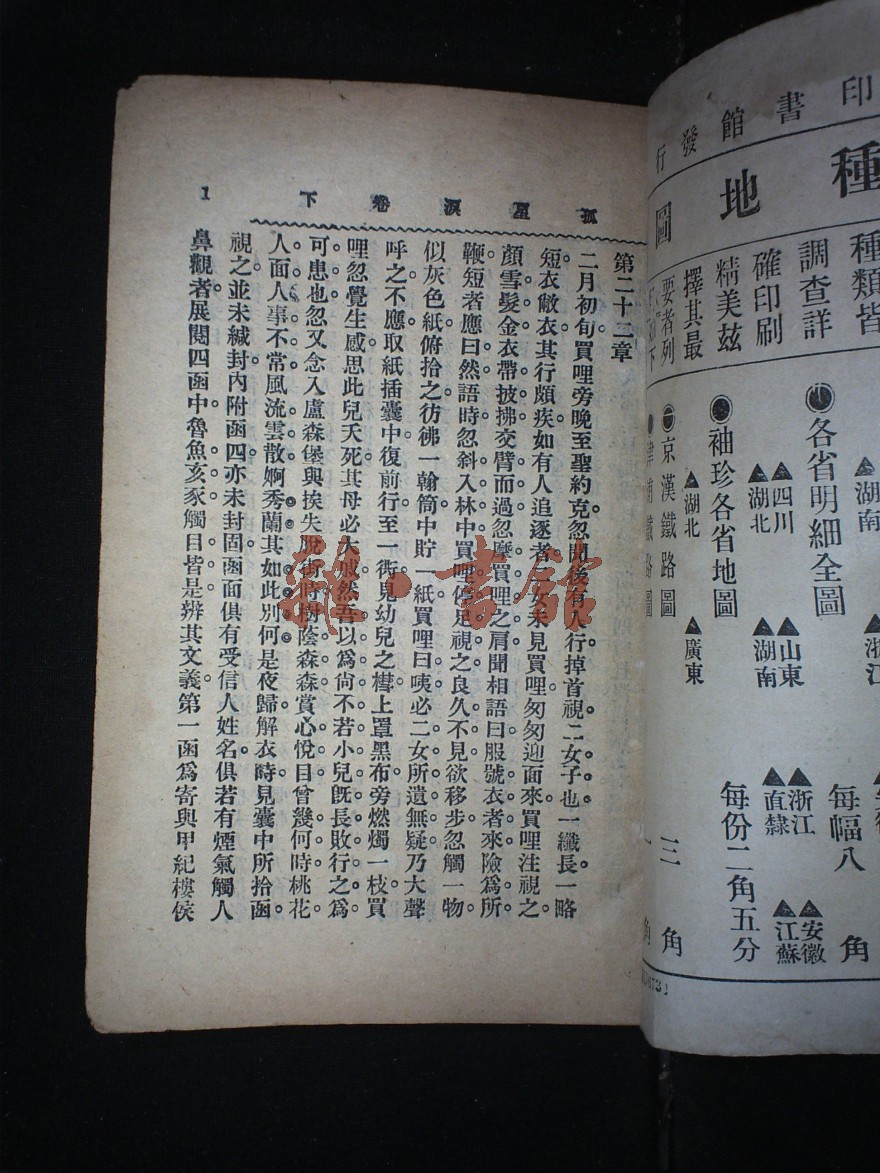 孤星淚卷下
1
第二十二章
二月初旬買哩旁晚至聖約克忽聞後有人行掉首視二女子也一纖長一略
短衣敝衣其行頗疾如有人追逐者二女未見買哩匆匆迎面來買哩注視之
顏雪髮金衣帶披拂交臂而過忽摩買哩之肩聞相語曰服號衣者來險為所
鞭短者應曰然語時忽斜入林中買哩停足視之良久不見欲移步忽觸一物
似灰色紙俯拾之彷彿一翰筒中貯一紙買哩曰咦必二女所遺無疑乃大聲
呼之不應取紙插囊中復前行至一街見幼兒之槥上罩黑布旁燃燭一枝買
哩忽覺生感思此兒夭死其母必大戚然吾以為尙不若小兒旣長敗行之為
可患也忽又念入盧森堡與挨失脫街時樹陰森森賞心悅目曾幾何時桃花
人面人事不常風流雲散婀秀蘭其如此別何是夜歸解衣時見囊中所拾函
視之並未緘封內附函四亦未封固函面俱有受信人姓名俱若有煙氣觸人
鼻觀者展閱四函中魯魚亥豕觸目皆是辨其文義第一函為寄與甲紀樓侯
印書館發行
種地圖
種類皆
調查詳
確印刷
精美茲
擇其最
要者列
下
各省明細全圖
▲湖南
▲四川
▲湖北
▲浙江
▲山東
▲湖南
▲浙江
▲直隸
▲安徽
▲江蘇
每幅八角
袖珍各省地圖
每份二角五分
京漢鐵路圖
▲湖北
▲廣東
三角
津浦鐵路圖
角
雜·書館